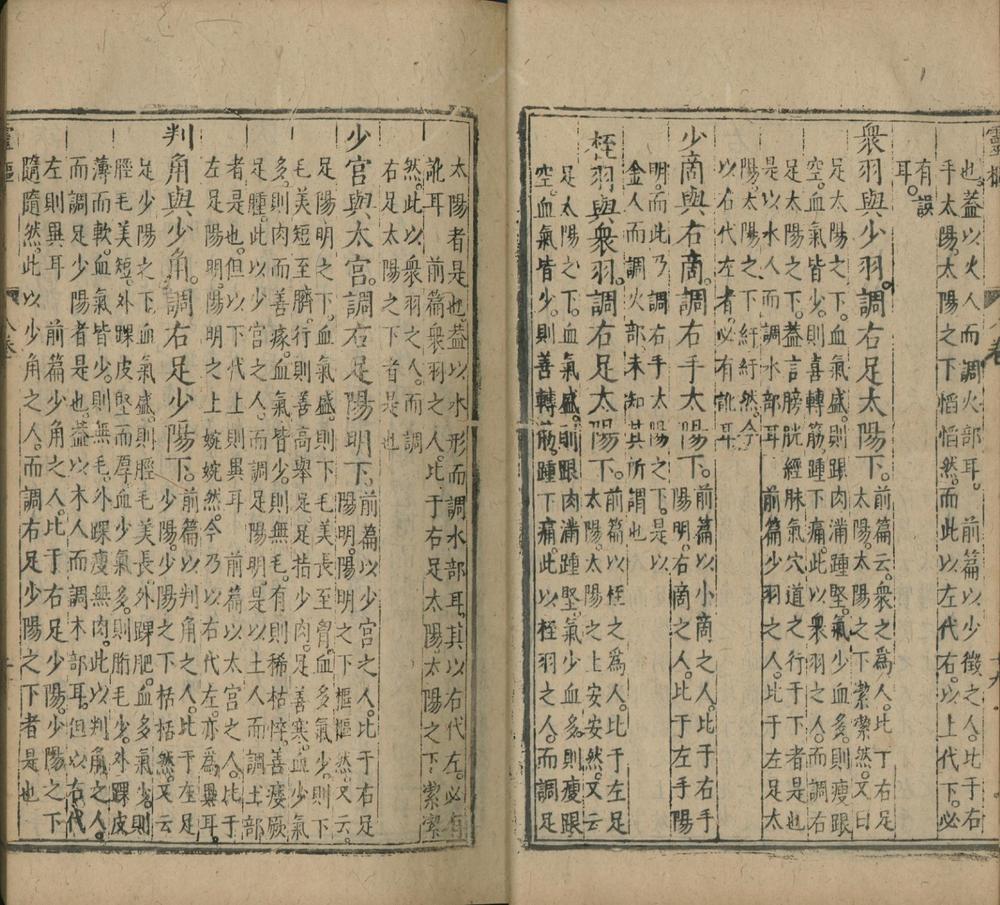 也蓋以火人而調火部耳前篇以少徵之人比于右
手太陽太陽之下慆慆然而此以左代右以上代下必
有誤
耳
衆羽與少羽調右足太陽下前篇云衆之為人比丁右足
太陽太陽之下潔潔然又曰
足太陽之下血氣盛則跟肉滿踵堅氣少血多則瘦跟
空血氣皆少則喜轉筋踵下痛此以衆羽之人而調右
足太陽之下蓋言膀胱經脉氣穴道之行于下者是也
是以水人而調水部耳前篇少羽之人比于左足太
陽太陽之下紆紆然今
以右代左者必有訛耳
少商與右商調右手太陽下前篇以小商之人比于右手
陽明右商之人比于左手陽
明而此乃調右手太陽之下是以
金人而調火部未知其所謂也
桎羽與衆羽調右足太陽下前篇以桎之爲人比于左足
太陽太陽之上安安然又云
足太陽之下血氣盛則跟肉滿踵堅氣少血多則瘦跟
空血氣皆少則善轉筋踵下痛此以桎羽之人而調足
太陽者是也蓋以水形而調水部耳其以右代左必有
訛耳前篇衆羽之人比于右足太陽太陽之下潔潔
然此以衆羽之人而調
右足太陽之下者是也
少宫與太宫調右足陽明下前篇以少宫之人比于右足
陽明陽明之下樞樞然又云
足陽明之下血氣盛則下毛美長至胷血多氣少則下
毛美短至臍行則善高舉足足指少肉足善寒血少氣
多則肉而善瘃血氣皆少則無毛有則稀枯悴善痿厥
足腫此以少宫之人而調足陽明是以土人而調土部
者是也但以下代上則異耳前篇以太宫之人比于
左足陽明陽明之上婉婉然今乃以右代左亦爲異耳
判角與少角調右足少陽下前篇以判角之人比于左足
少陽少陽之下栝栝然又云
足少陽之下血氣盛則脛毛美長外踝肥血多氣少則
脛毛美短外踝皮堅而厚血少氣多則胻毛少外踝皮
薄而軟血氣皆少則無毛外踝瘦無肉此以判角之人
而調足少陽者是也蓋以木人而調木部耳但以右代
左則異耳前篇少角之人比于右足少陽少陽之下
隨隨然此以少角之人而調右足少陽之下者是也